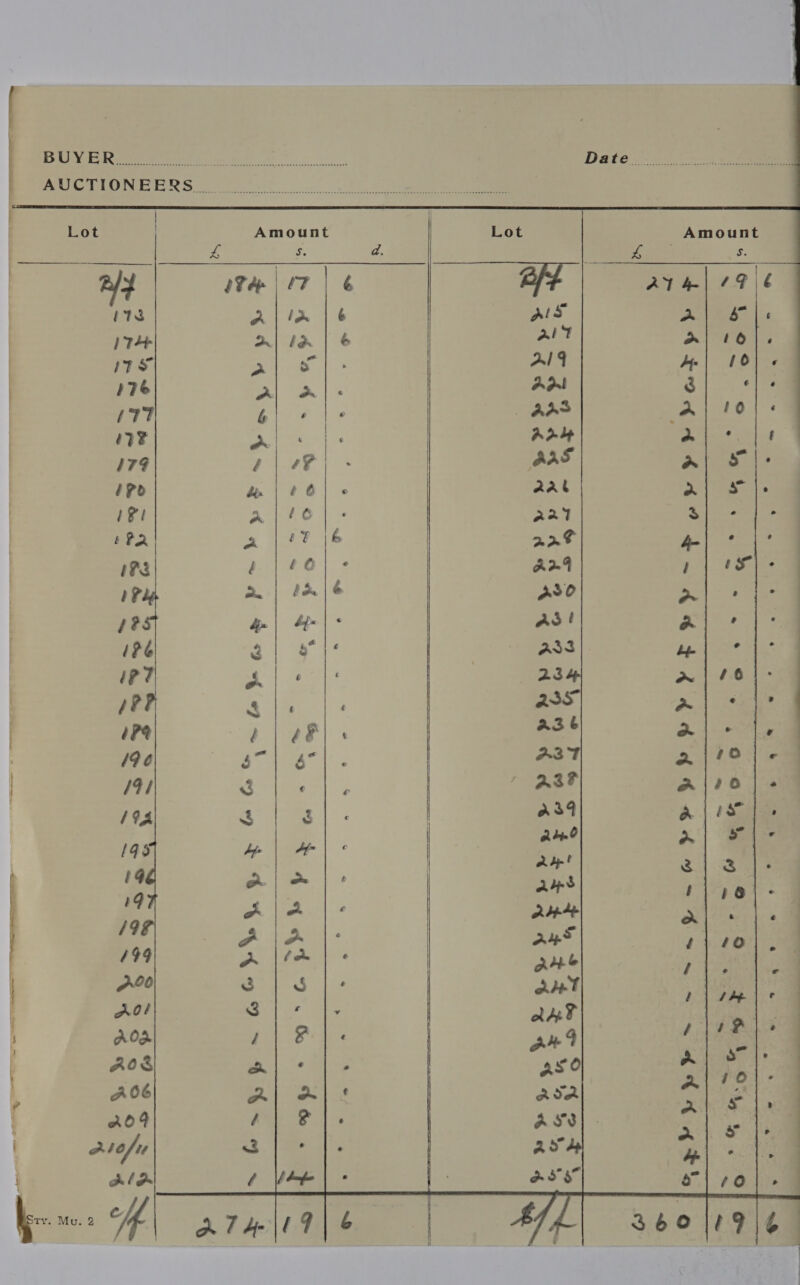 BUYER Date
AUCTIONEERS
Lot Amount Lot Amount
£ s. d. £ s.
B/f 184 17 6 B/f 274 19 6
173 2 12 6 215 2 5 .
174 2 12 6 217 2 10 .
175 2 5 . 219 4 10 .
176 2 2 . 221 3 . .
177 6 . . 223 2 10 .
178 2 . . 224 2 . .
179 1 18 . 225 2 5 .
180 4 10 . 226 2 5 .
181 2 10 . 227 3 . .
182 2 17 6 228 4 . .
183 1 10 . 229 1 15 .
184 2 12 6 230 2 . .
185 4 4 . 231 2 . .
186 3 5 . 233 4 . .
187 2 . . 234 2 10 .
188 3 . . 235 2 . .
189 1 18 . 236 2 . .
190 5 5 . 237 2 10 .
191 3 . . 238 2 10 .
192 3 3 . 239 2 15 .
195 4 4 . 240 2 5 .
196 2 2 . 241 3 3 .
197 2 2 . 243 1 10 .
198 2 2 . 244 2 . .
199 2 12 . 245 1 10 .
200 3 3 . 246 1 . .
201 3 . . 247 1 14 .
202 1 8 . 248 1 18 .
203 2 . . 249 2 5 .
206 2 2 . 250 2 10 .
209 1 8 . 252 2 5 .
210/11 3 . . 253 2 5 .
212 1 14 . 254 4 . .
255 5 10 .
Sty. Mu. 2 c/f 274 19 6 c/f 360 19 6